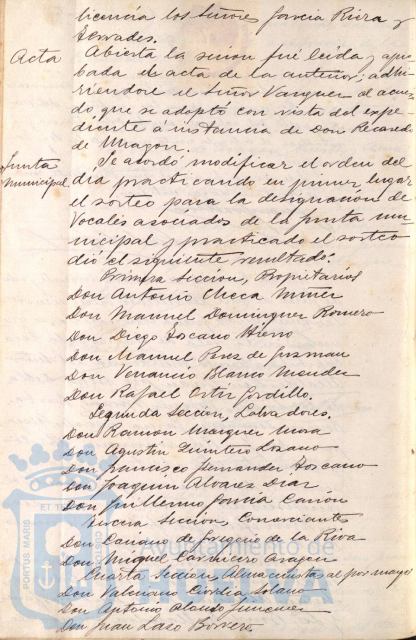 licencia los Señores Garcia Riera y
Terrades.
Acta
Abierta la sesion fué leida y apro
bada el acta de la anterior; adhi
riendose el Señor Vazquez al acuer
do que se adoptó con vista del expe
diente á instancia de Don Ricardo
de Aragon.
Junta
municipal
Se acordó modificar el orden del
dia practicando en primer lugar
el sorteo para la designacion de
Vocales asociados de la junta mu
nicipal y practicado el sorteo
dió el siguiente resultado:
Primera Seccion, Propietarios
Don Antonio Checa Nuñez
Don Manuel Dominguez Romero
Don Diego Toscano Hierro
Don Manuel Perez de Guzman
Don Venancio Blanco Mendez
Don Rafael Ortiz Gordillo.
Segunda Seccion, Labradores.
Don Ramon Marquez Mora
Don Agustin Quintero Lozano
Don Francisco Fernandez Toscano
Don Joaquin Alvarez Diaz
Don Guillermo Garcia Cañon
Tercera Seccion, Comerciantes
Don Casiano de Gregorio de la Riva
Don Miguel Carnicero Aragon
Cuarta Seccion Almacenistas al por mayor
Don Valeriano Cordia Solano
Don Antonio Alonso Jimenez
Don Juan Laso Borrero
PORTUS MARIS
Ayuntamiento de